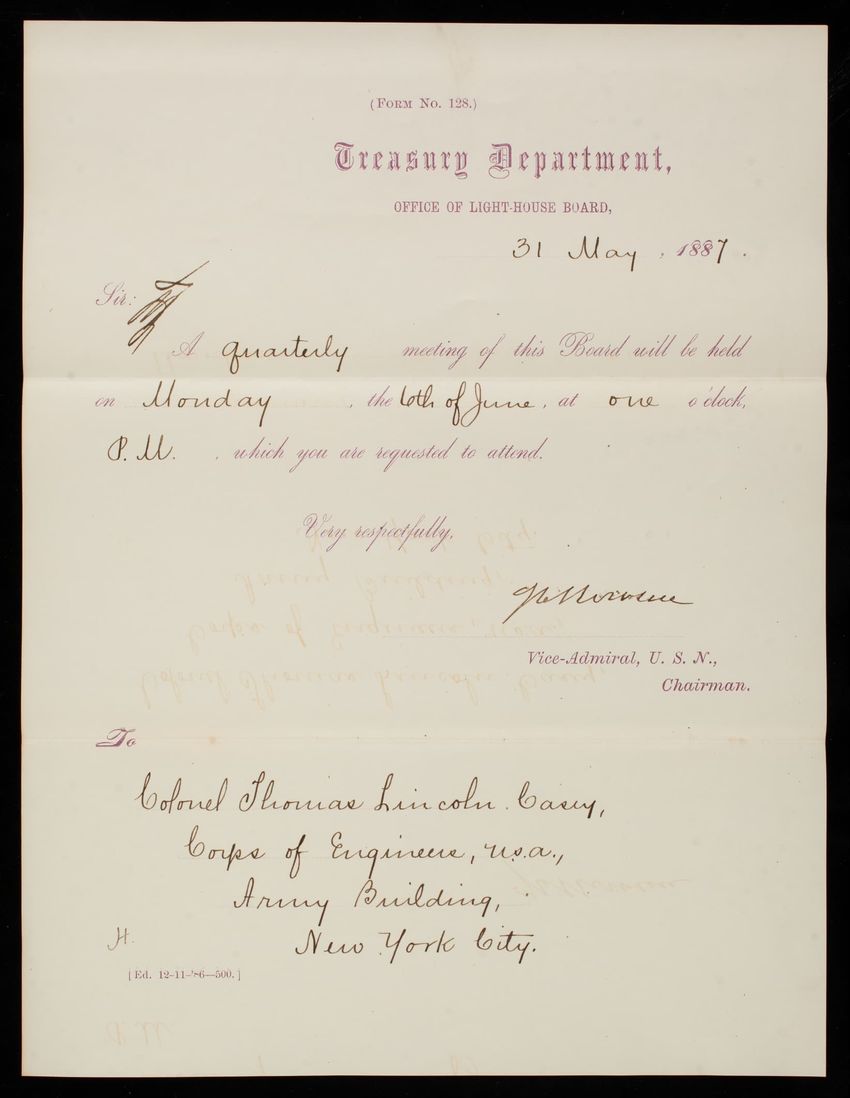 (FORM No. 128.)
Treasury Department,
OFFICE OF LIGHT-HOUSE BOARD,
31 May, 1887.
Sir:
A quarterly meeting of this Board will be held
on Monday, the 6th of June, at one o'clock,
P. M., which you are requested to attend.
Very respectfully,
Vice-Admiral, U. S. N.,
Chairman.
To
Colonel Thomas Lincoln Casey,
Corps of Engineers, U.S.A.,
Army Building,
H. New York City.
[Ed. 12-11-'86—500.]